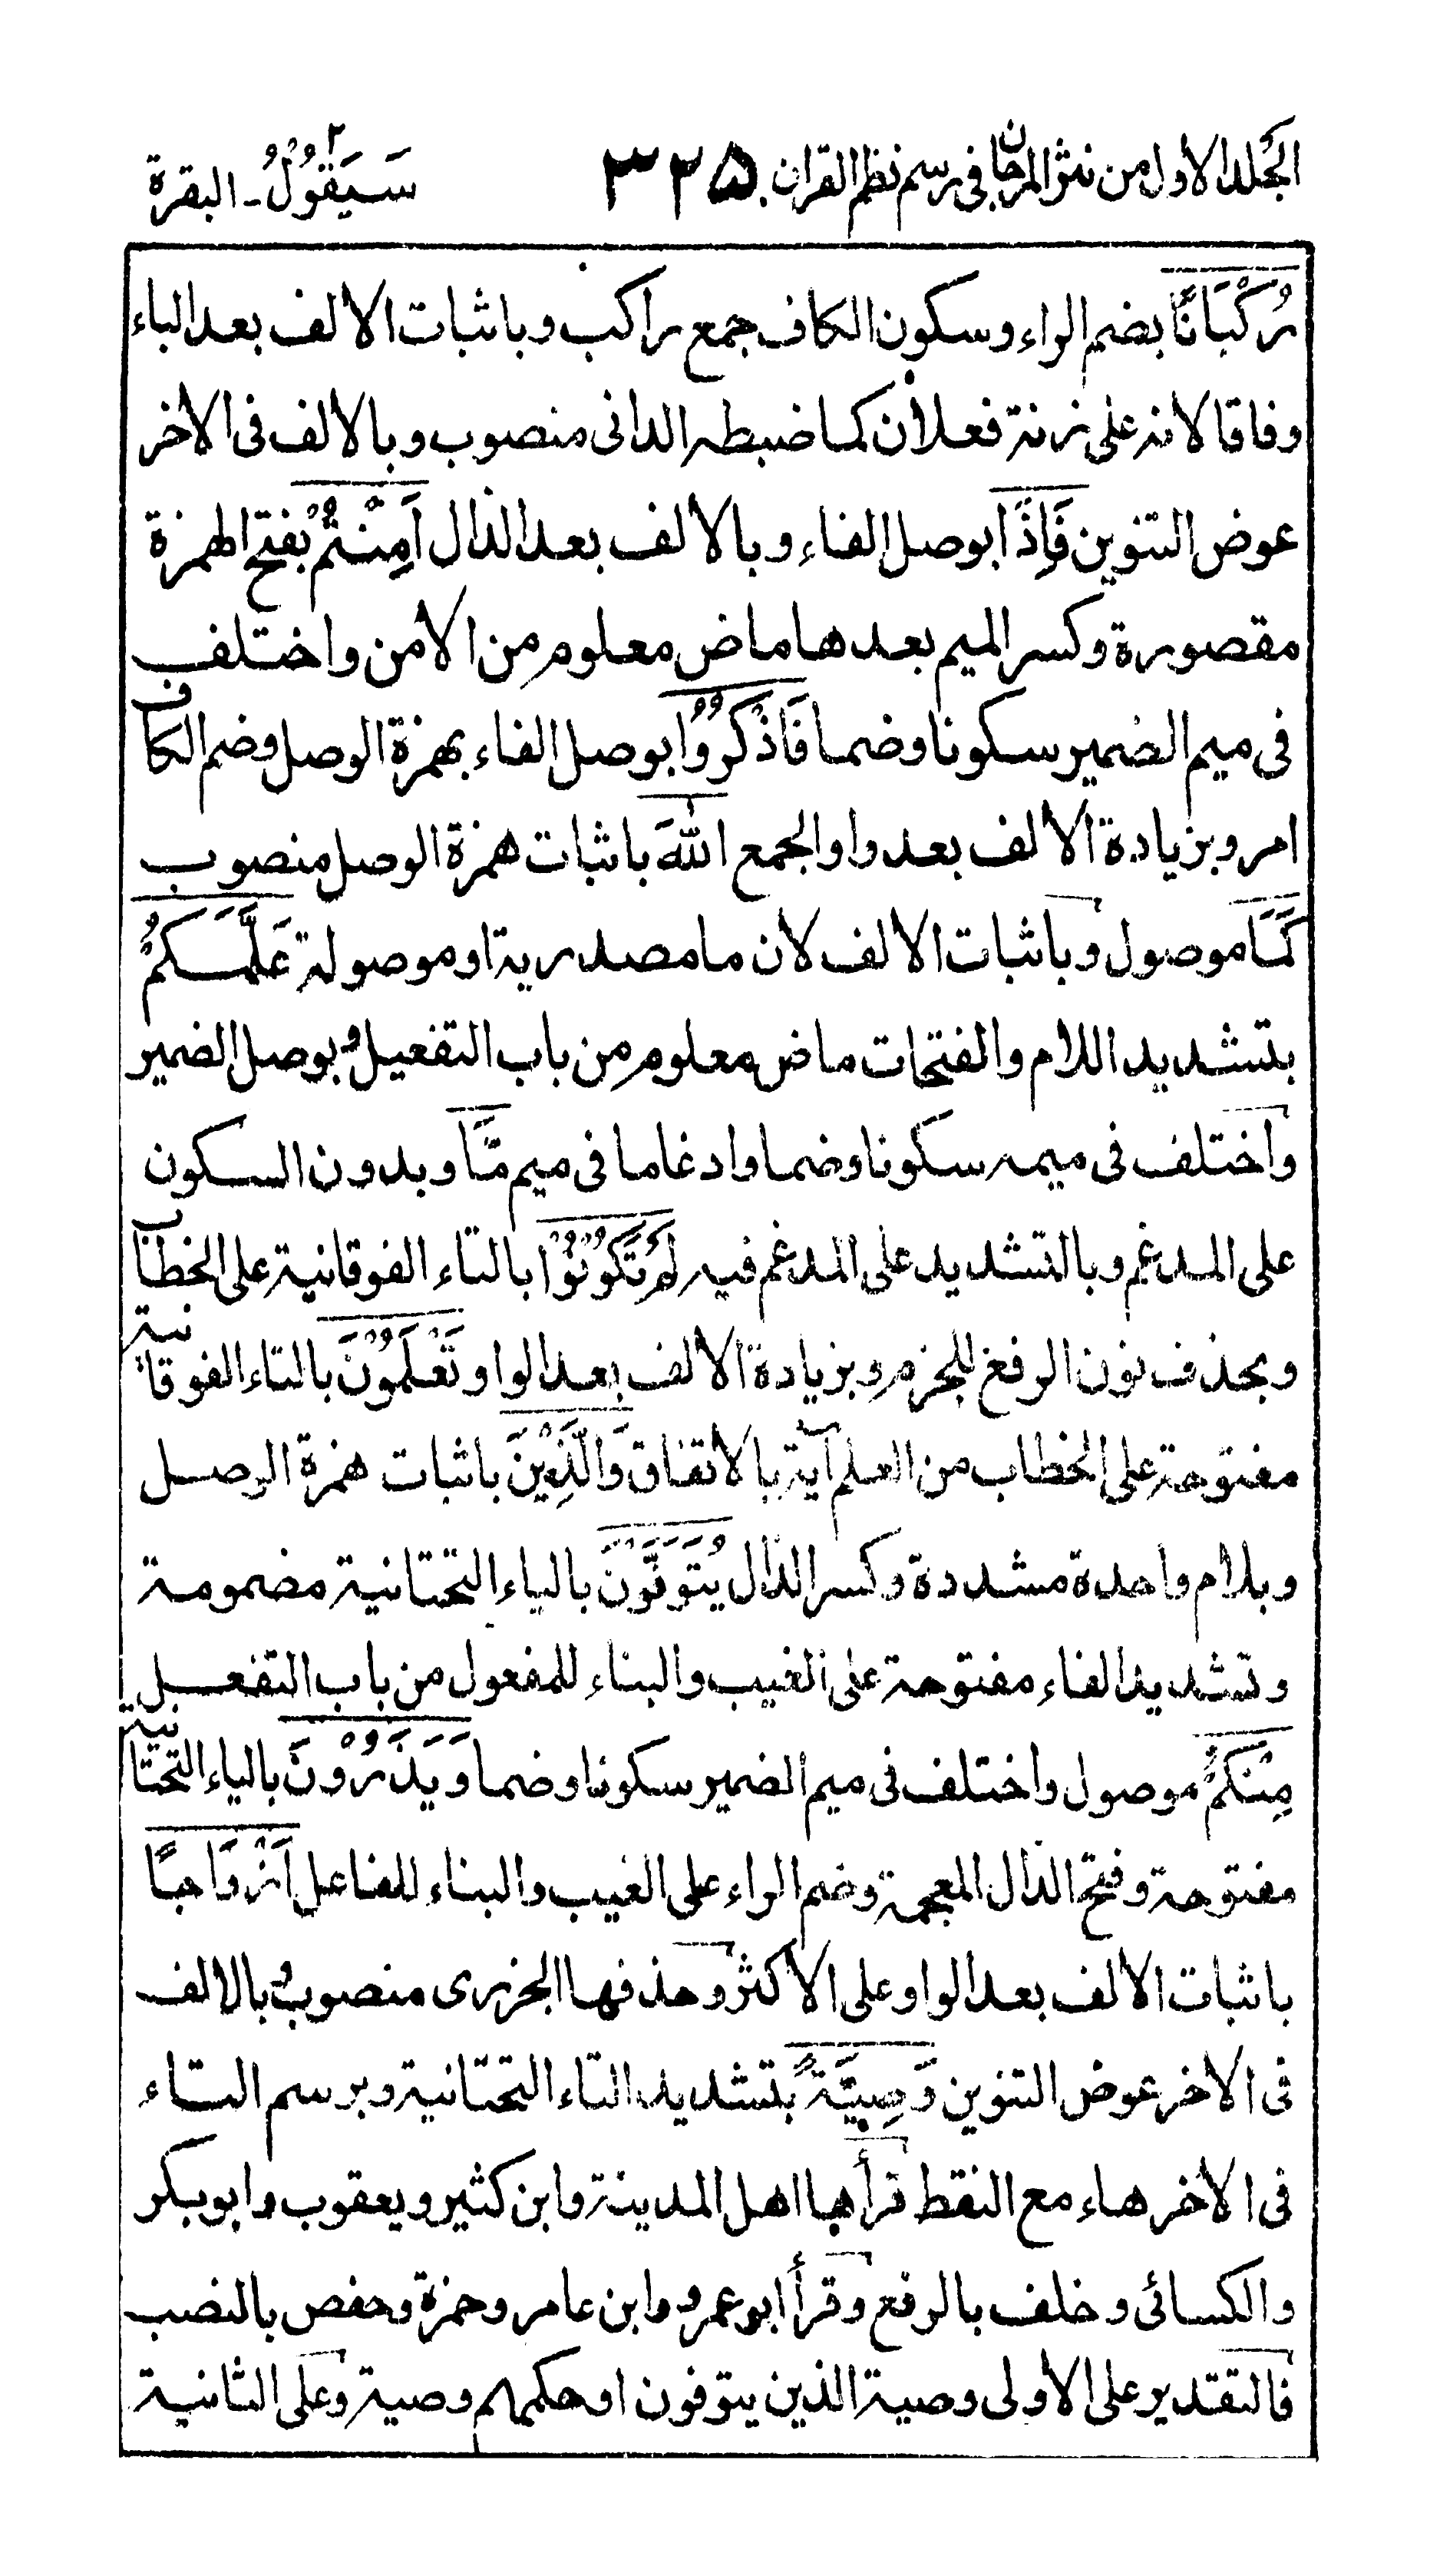 الجلد الاول من نثر المرجان فی رسم نظم القران. ۳۲۵ سَيَقُوْلُ ۲ ـ البقرة
رُكْبَانًا بضم الراء وسكون الكاف جمع راكب وباثبات الالف بعد الباء
وفاقا لانه علی زنة فعلان كما ضبطه الدانی منصوب وبالالف فی الاخر
عوض التنوين فَاِذَا بوصل الفاء وبالالف بعد الذال اَمِنْتُمْ بفتح الهمزة
مقصورة وكسر الميم بعدها ماض معلوم من الامن واختلف
فی ميم الضمير سكونا وضما فَاذْكُرُوْا بوصل الفاء بهمزة الوصل وضم الكاف
امر وبزيادة الالف بعد واو الجمع اللهَ باثبات همزة الوصل منصوب
كَمَا موصول وباثبات الالف لان ما مصدرية او موصولة عَلَّمَكُمْ
بتشديد اللام والفتحات ماض معلوم من باب التفعيل وبوصل الضمير
واختلف فی ميمه سكونا وضما وادغاما فی ميم مَّا وبدون السكون
علی المدغم وبالتشديد علی المدغم فيه لَمْ تَكُوْنُوْا بالتاء الفوقانية علی الخطاب
وبحذف نون الرفع للجزم وبزيادة الالف بعد الواو تَعْلَمُوْنَ بالتاء الفوقانية
مفتوحة علی الخطاب من العلم آية بالاتفاق وَالَّذِيْنَ باثبات همزة الوصل
وبلام واحدة مشددة وكسر الذال يُتَوَفَّوْنَ بالياء التحتانية مضمومة
وتشديد الفاء مفتوحة علی الغيب والبناء للمفعول من باب التفعل
مِنْكُمْ موصول واختلف فی ميم الضمير سكونا وضما وَيَذَرُوْنَ بالياء التحتانية
مفتوحة وفتح الذال المعجمة وضم الراء علی الغيب والبناء للفاعل اَزْوَاجًا
باثبات الالف بعد الواو علی الاكثر وحذفها الجزری منصوب وبالالف
فی الاخر عوض التنوين وَصِيَّةً بتشديد التاء التحتانية وبرسم التاء
فی الاخر هاء مع النقط قرأها اهل المدينة وابن كثير ويعقوب وابوبكر
والكسائی وخلف بالرفع وقرأ ابو عمرو وابن عامر وحمزة وحفص بالنصب
فالتقدير علی الاولی وصية الذين يتوفون او حكمهم وصية وعلی الثانية